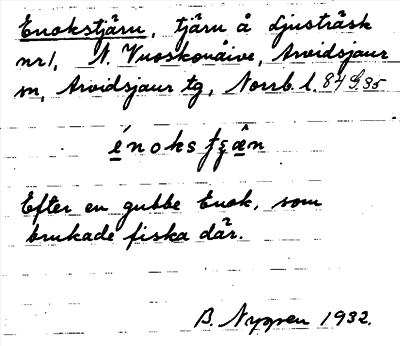 Enokstjärn, tjärn å Ljusträsk
nr 1, N. Vuoskonåive, Arvidsjaur
sn, Arvidsjaur tg, Norrb. l. 84 G. 35
énoks tʂæ̂n
Efter en gubbe Enok, som
brukade fiska där.
B. Nyppen 1932.